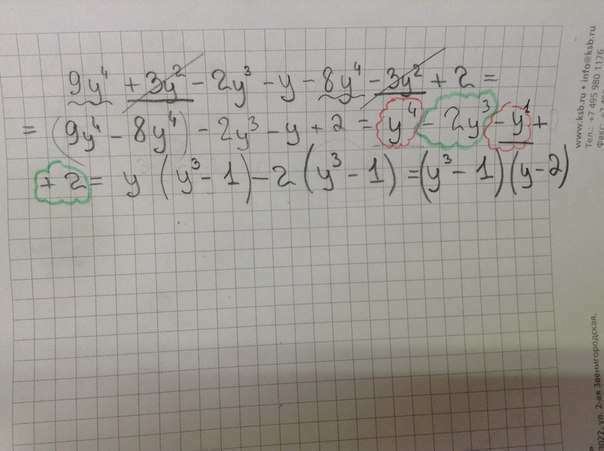 9y⁴ + 3y² - 2y³ - y - 8y⁴ - 3y² + 2 =
= (9y⁴ - 8y⁴) - 2y³ - y + 2 = y⁴ - 2y³ - y¹ +
+ 2 = y (y³ - 1) - 2 (y³ - 1) = (y³ - 1)(y - 2)
www.ksb.ru • info@ksb.ru
Тел.: +7 495 980 1176
Факс:
2022, ул. 2-ая Звенигородская,